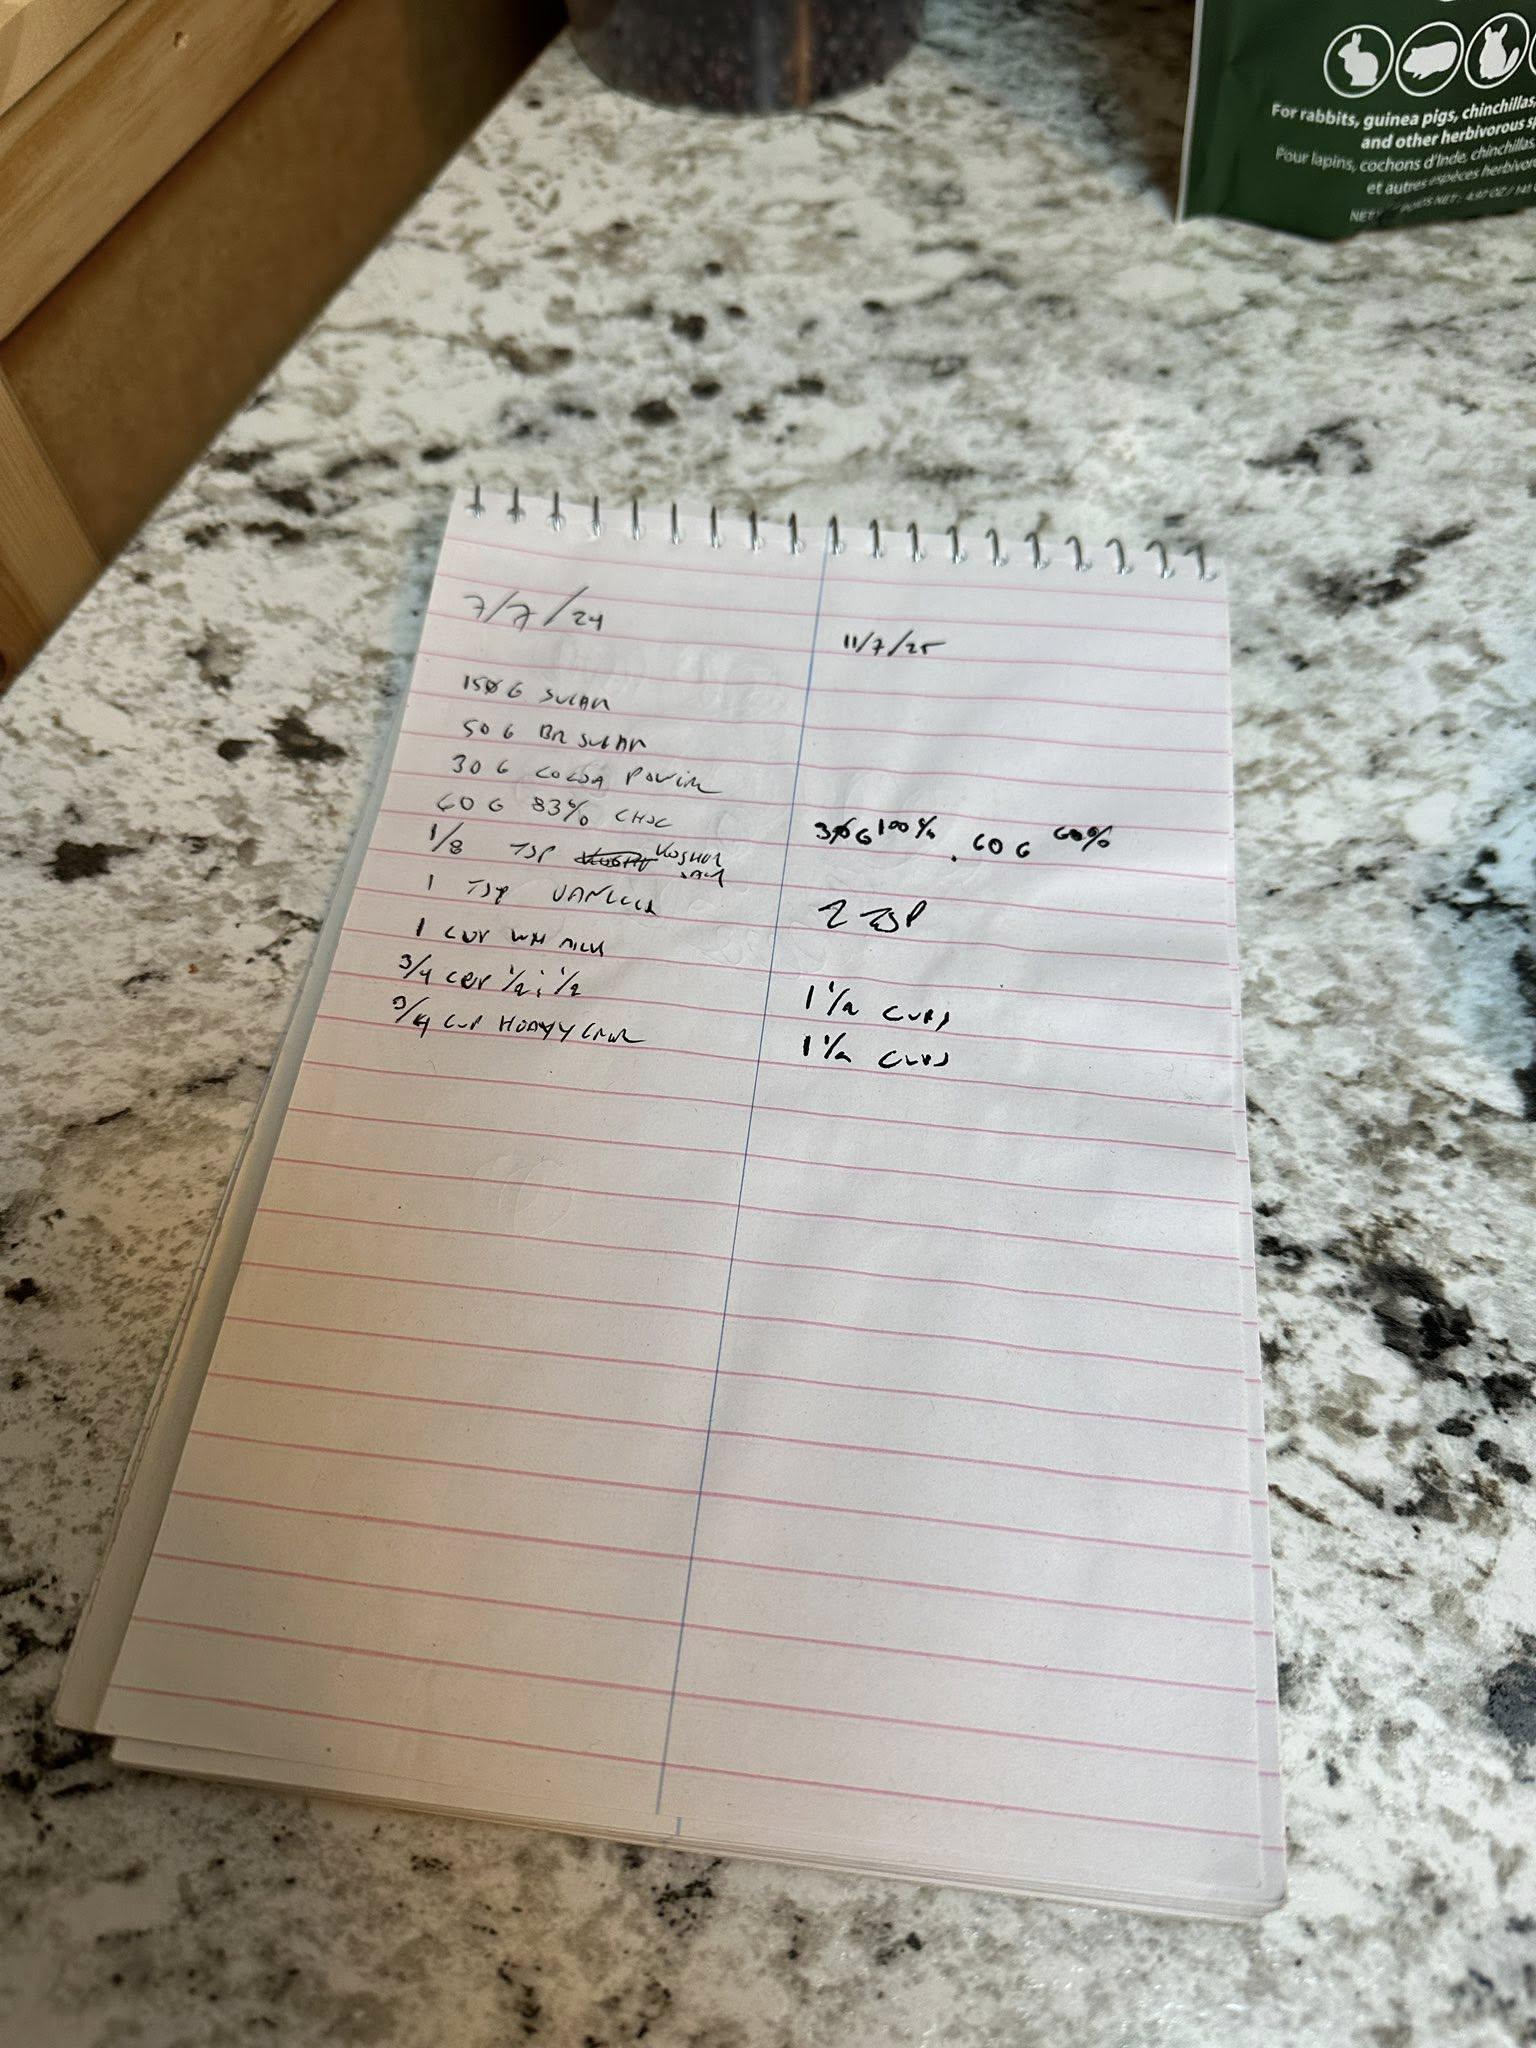 For rabbits, guinea pigs, chinchillas,
and other herbivorous
Pour lapins, cochons d'Inde, chinchillas
et autres espèces
POIDS NET: 4.97 OZ / 141
7/7/24
11/7/25
150 G SUGAR
50 G BR SUGAR
30 G COCOA POWDER
60 G 83% CHOC
30 G 100% . 60 G 60%
1/8 TSP KOSHER
SALT
1 TSP VANILLA
2 TSP
1 CUP WH MILK
3/4 CUP 1/2 : 1/2
1 1/2 CUPS
3/4 CUP HEAVY CREAM
1 1/2 CUPS